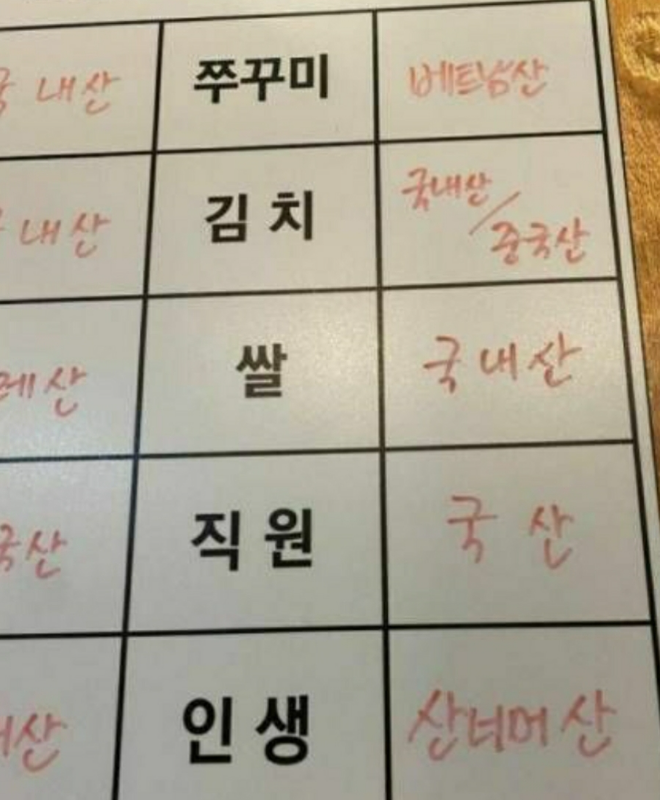 내산 쭈꾸미 베트남산
내산 김치 국내산/중국산
산 쌀 국내산
국산 직원 국산
산 인생 산너머 산